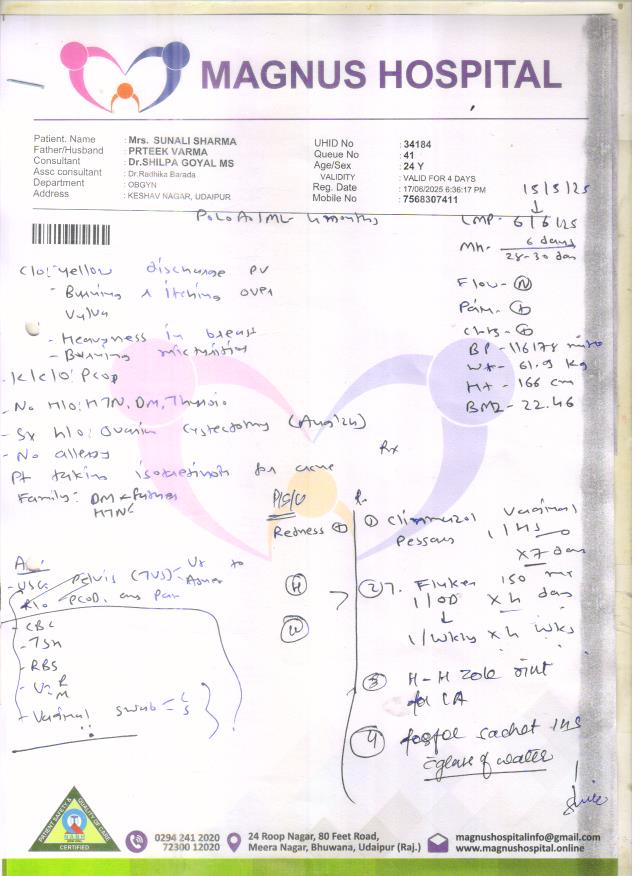 MAGNUS HOSPITAL
Patient. Name : Mrs. SUNALI SHARMA
Father/Husband : PRTEEK VARMA
Consultant : Dr.SHILPA GOYAL MS
Assc consultant : Dr.Radhika Barada
Department : OBGYN
Address : KESHAV NAGAR, UDAIPUR
UHID No : 34184
Queue No : 41
Age/Sex : 24 Y
VALIDITY : VALID FOR 4 DAYS
Reg. Date : 17/06/2025 6:36:17 PM
Mobile No : 7568307411
15/5/25
P0L0A0 / ML- 4 months
LMP- 6/6/25
MH- 6 days
28-30 days
Flow- N
Pain- +
Clots- +
BP- 116/78
Wt- 61.9 kg
Ht- 166 cm
BMI- 22.46
C/o: Yellow discharge PV
- Burning & itching over
Vulva
- Heaviness in breast
- Burning micturition
- K/C/O: PCOD
- No H/o: HTN, DM, Thyroid
- Sx H/o: Ovarian Cystectomy (Aug/24)
- No allergy
Pt taking isotretinoin for acne
Family: DM - Father
HTN
P/S/V
Redness +
Rx
A:
- USG Pelvis (TVS)
R/o PCOD,
- CBC
- TSH
- RBS
- U R/M
- Vaginal Swab C/S
① Clinmizol Vaginal
Pessary 1 HS
X7 days
② T. Fluka 150 mg
1 OD X 4 days
↓
1/wkly X 4 wks
③ H-H Zole oint
for LA
④ fosfoc sachet 1HS
c glass of water
0294 241 2020
72300 12020
24 Roop Nagar, 80 Feet Road,
Meera Nagar, Bhuwana, Udaipur (Raj.)
magnushospitalinfo@gmail.com
www.magnushospital.online
PATIENT SAFETY & QUALITY OF CARE
CERTIFIED